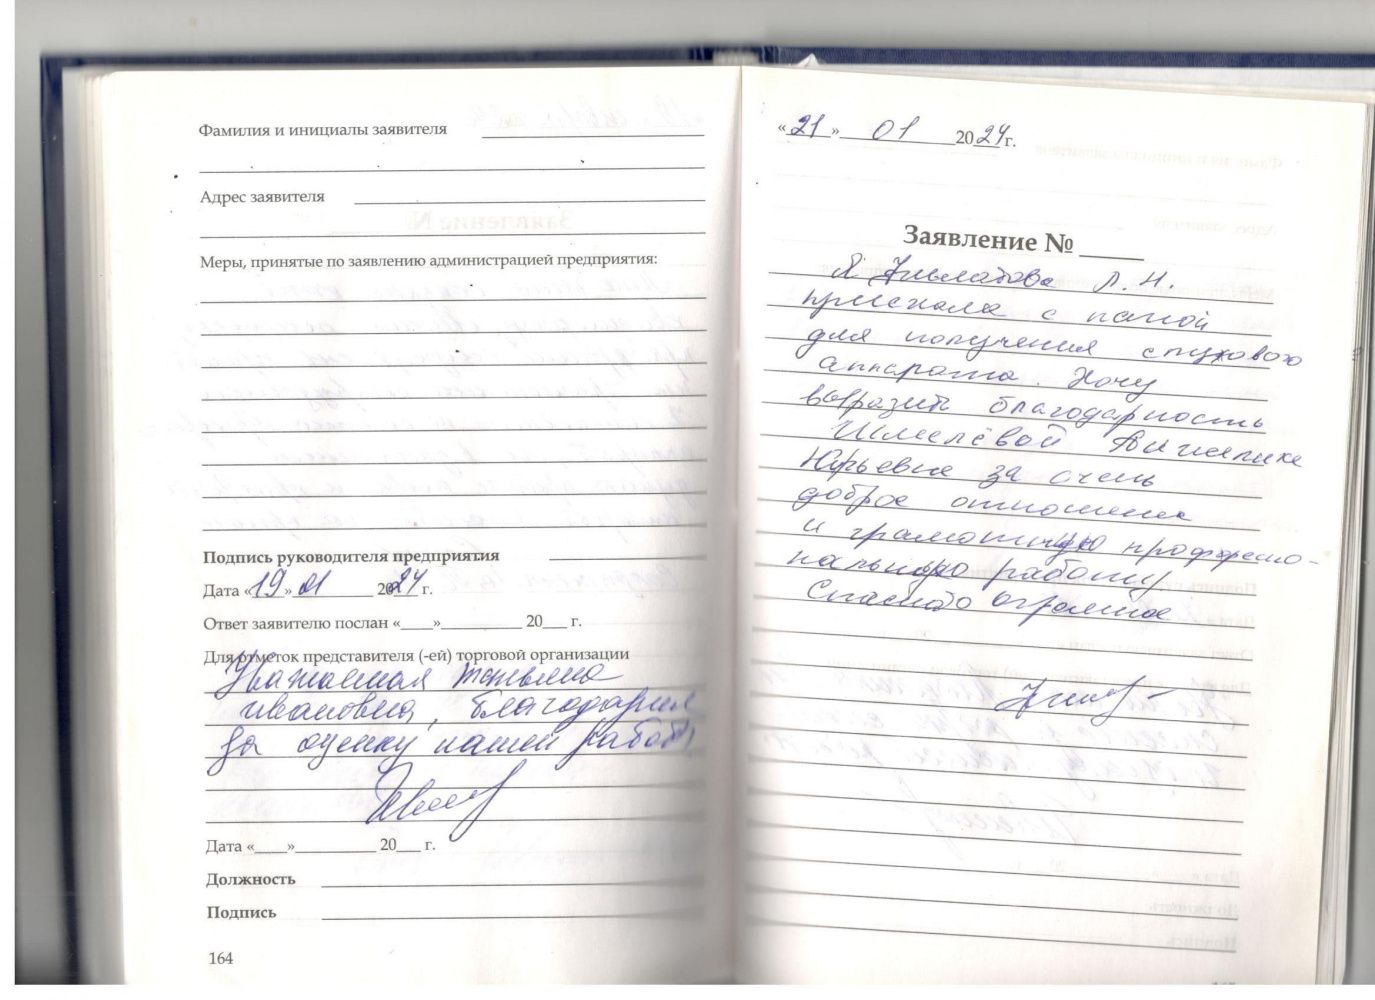 Фамилия и инициалы заявителя
Адрес заявителя
Меры, принятые по заявлению администрацией предприятия:
Подпись руководителя предприятия
Дата «19» 01 2024 г.
Ответ заявителю послан «____»__________ 20___ г.
Для отметок представителя (-ей) торговой организации
Уважаемая Татьяна
Ивановна, благодарим
за оценку нашей работы
Дата «____»__________ 20___ г.
Должность
Подпись
164
«21» 01 2024г.
Заявление № _____
Я Л.Н.
приехала с папой
для получения слухового
аппарата. Хочу
выразить благодарность
Шмелёвой Анжелике
Юрьевне за очень
доброе отношение
и грамотную профессио-
нальную работу
Спасибо огромное